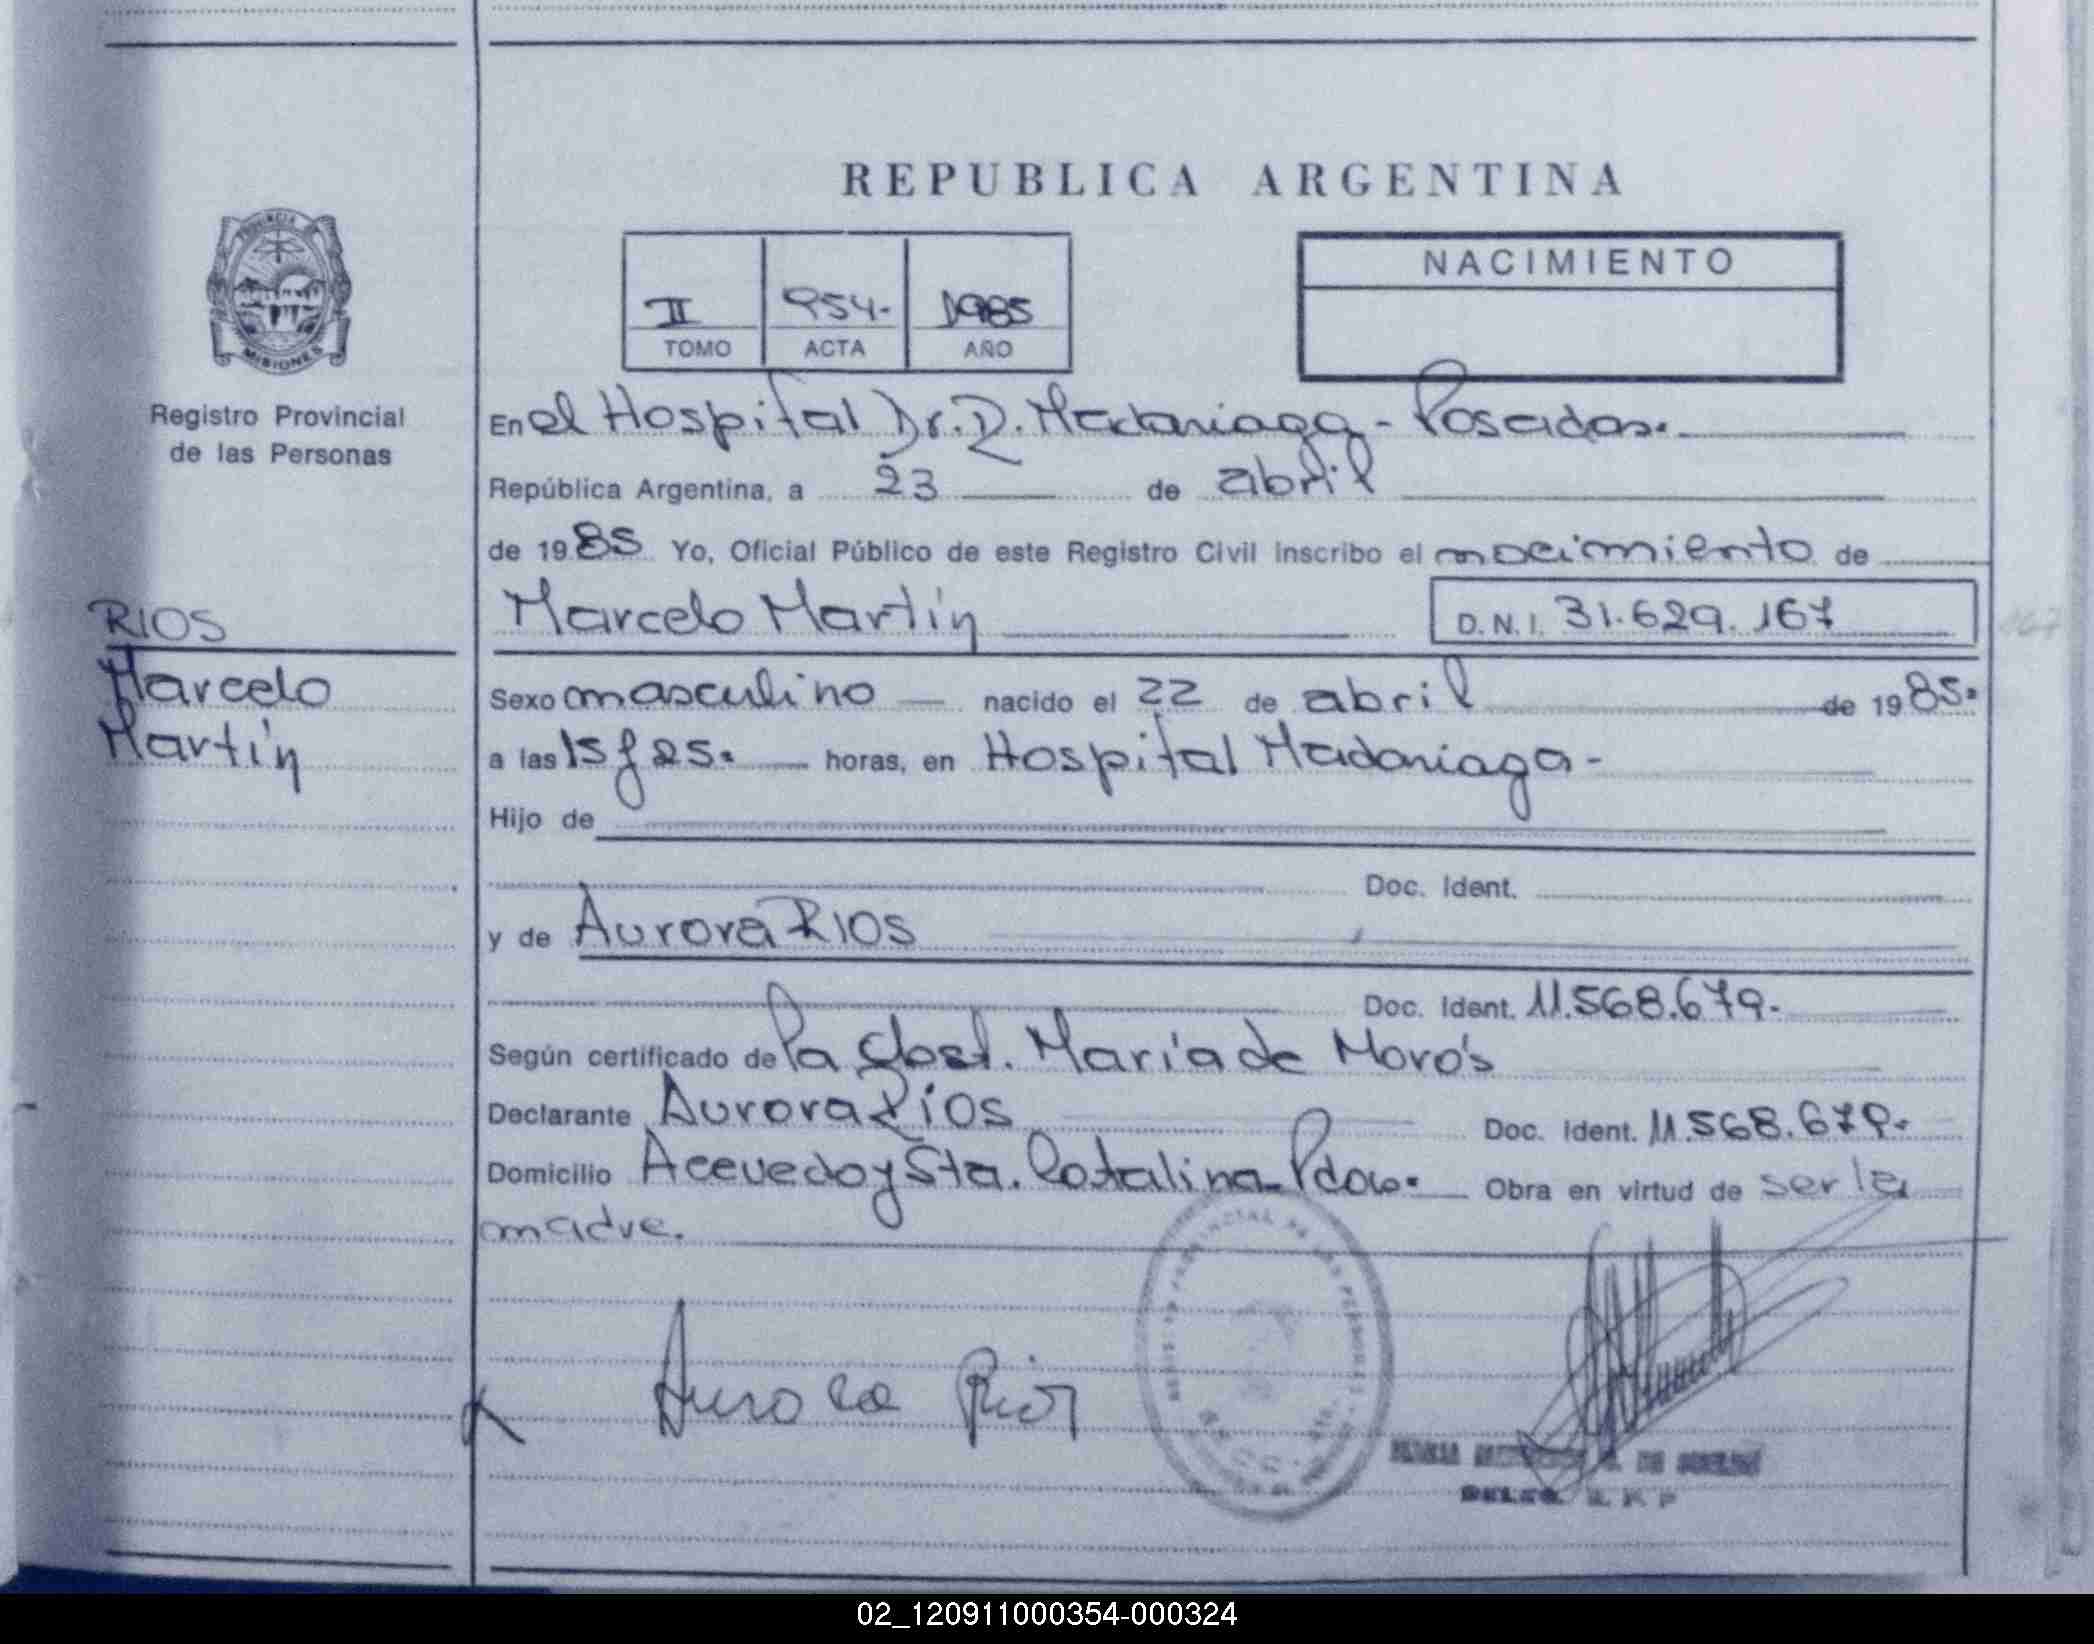 REPUBLICA ARGENTINA
PROVINCIA DE
MISIONES
Registro Provincial
de las Personas
NACIMIENTO
II 954- 1985
TOMO ACTA AÑO
En el Hospital Dr. R. Madariaga - Posadas.
República Argentina, a 23 de abril
de 1985 Yo, Oficial Público de este Registro Civil inscribo el nacimiento de
RIOS
Marcelo
Martín
Marcelo Martín D.N.I. 31.629.167
Sexo masculino nacido el 22 de abril de 1985.
a las 15 y 25. horas, en Hospital Madariaga -
Hijo de
Doc. Ident.
y de Aurora RIOS
Doc. Ident. 11.568.679.
Según certificado de la Obst. María de
Declarante Aurora Ríos Doc. Ident. 11.568.679.
Domicilio Acevedo y Sta. Catalina - Pdas. Obra en virtud de ser la
madre.
Aurora Rios
DE
02_120911000354-000324